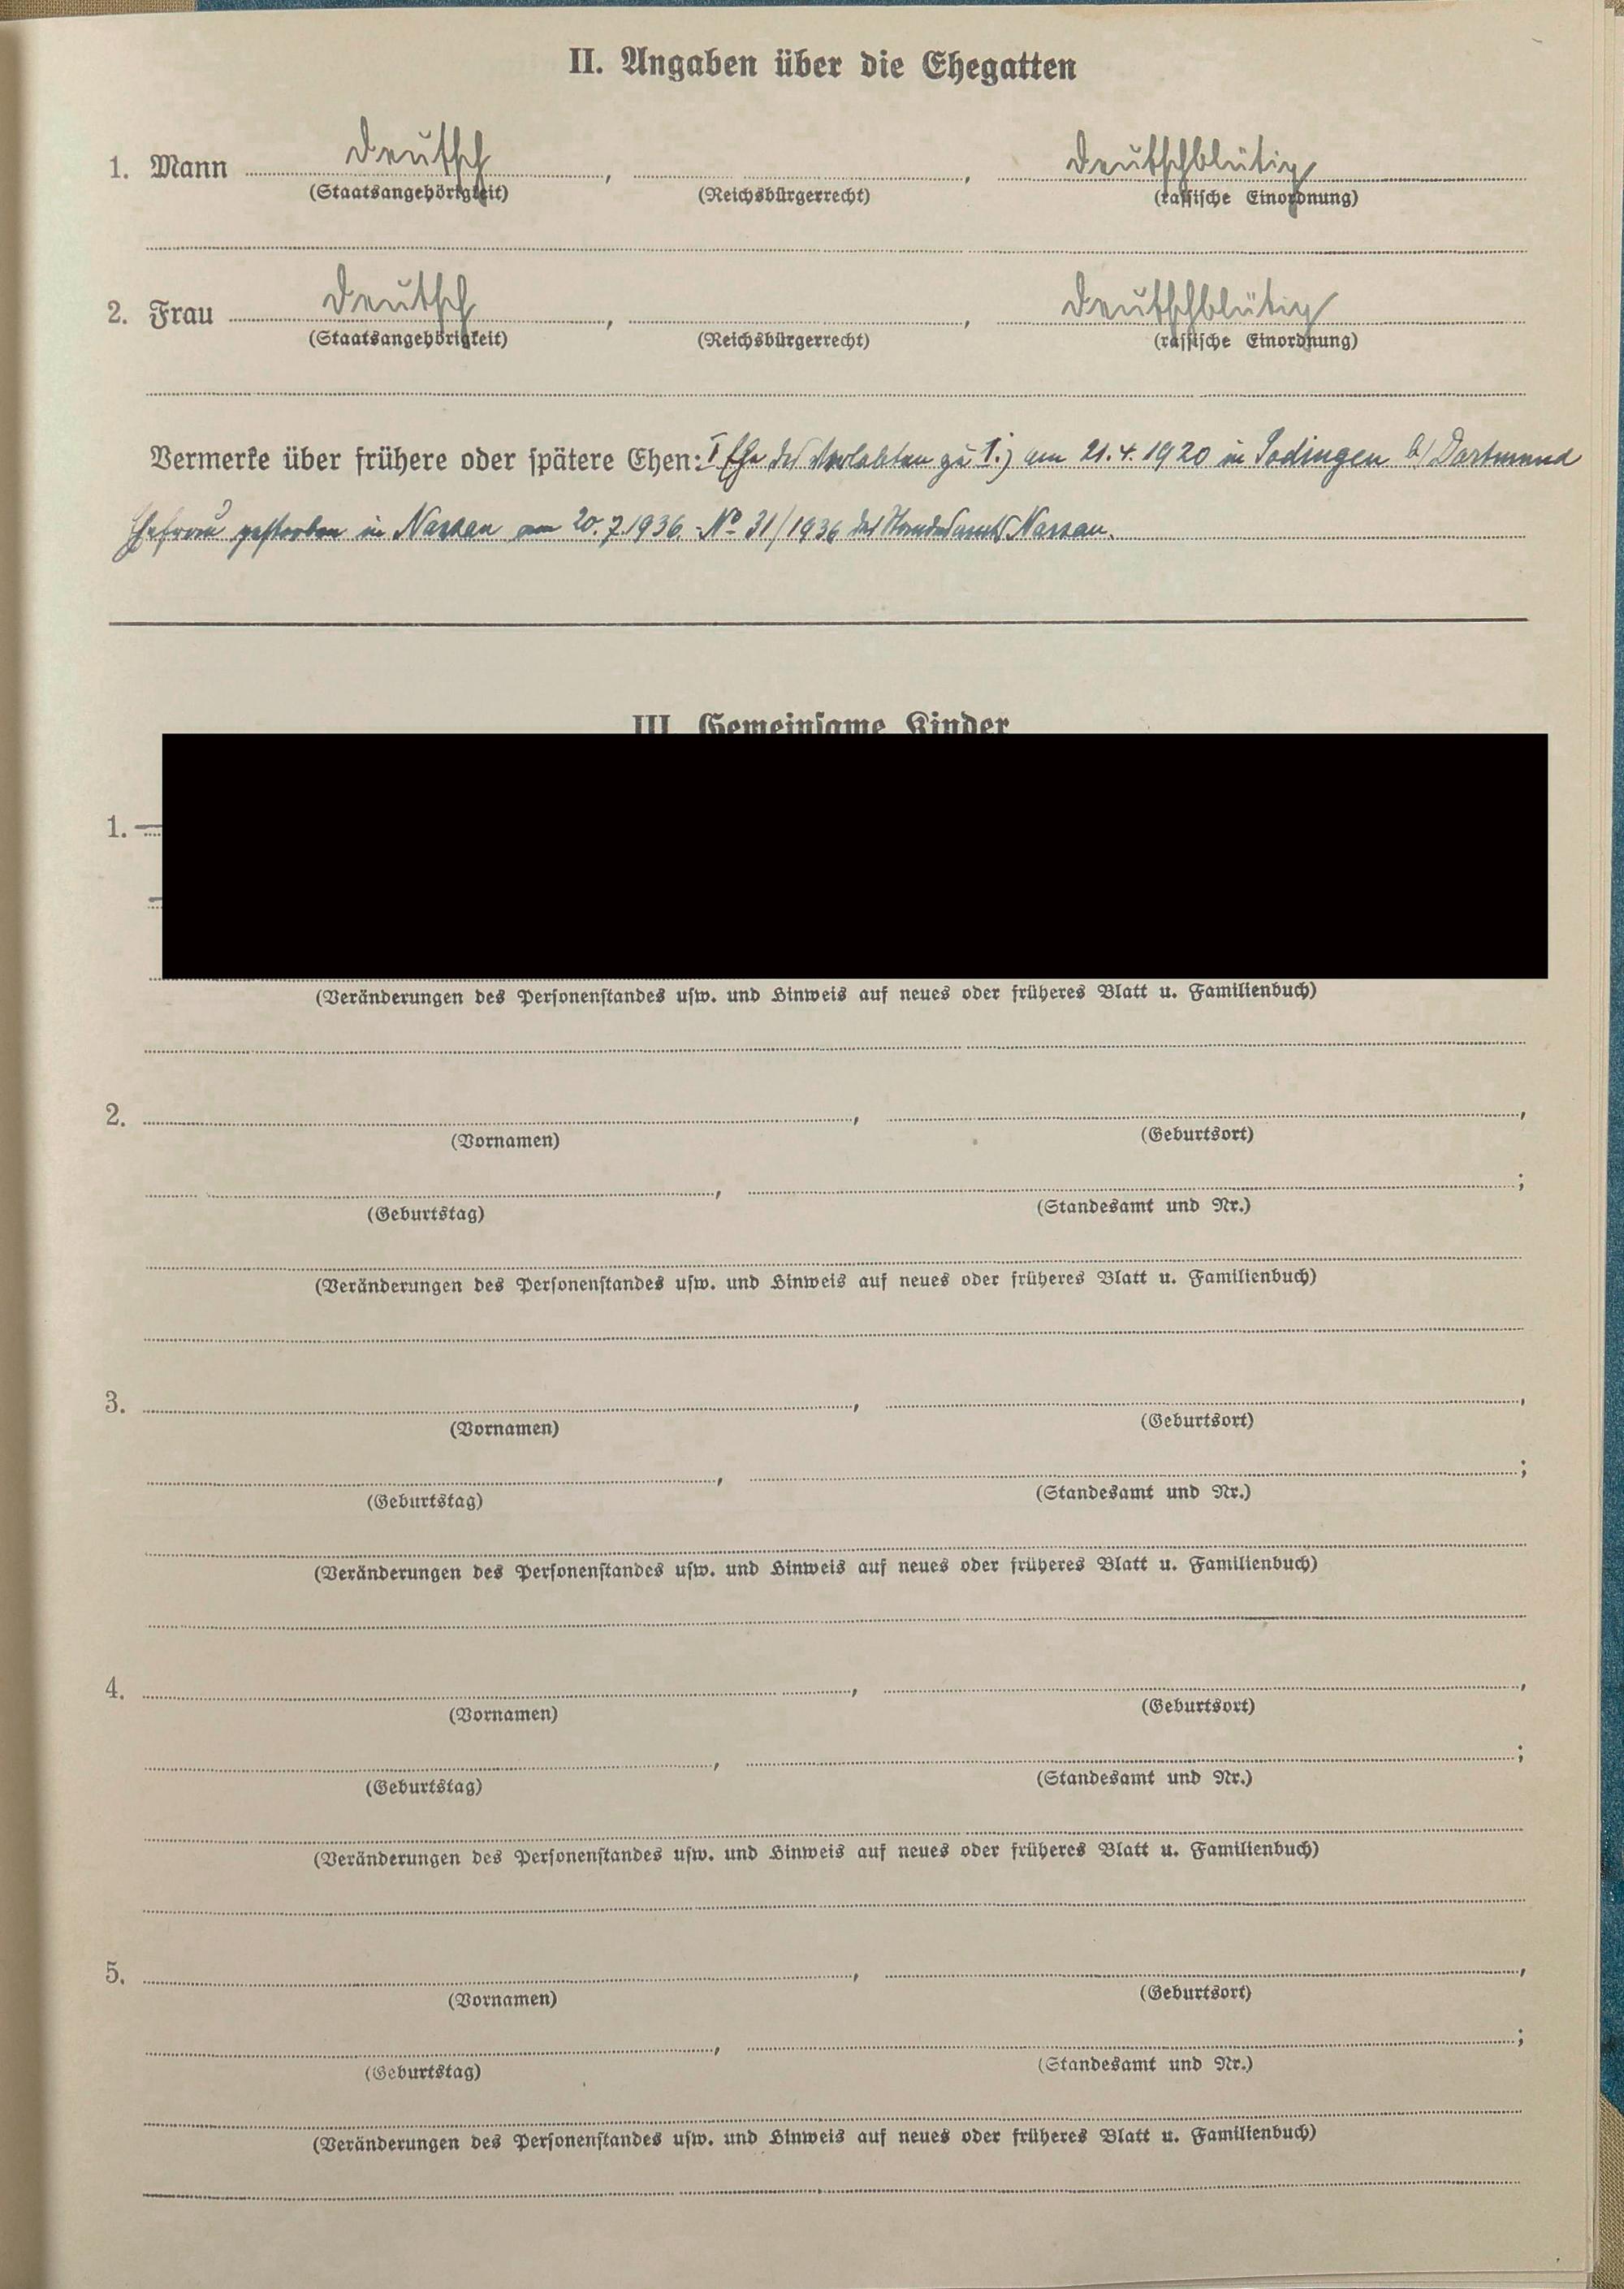 II. Angaben über die Ehegatten
1. Mann deutsch, , deutschblütig
(Staatsangehörigkeit) (Reichsbürgerrecht) (rassische Einordnung)
2. Frau deutsch, , deutschblütig
(Staatsangehörigkeit) (Reichsbürgerrecht) (rassische Einordnung)
Vermerke über frühere oder spätere Ehen: I Ehe des Verlobten zu 1.) am 21.4.1920 in Sodingen b/ Dortmund
Ehefrau gestorben in Nassau am 20.7.1936. No 31/1936 des Standesamts Nassau.
III. Gemeinsame Kinder
1.
(Veränderungen des Personenstandes usw. und Hinweis auf neues oder früheres Blatt u. Familienbuch)
2. , ,
(Vornamen) (Geburtsort)
, ;
(Geburtstag) (Standesamt und Nr.)
(Veränderungen des Personenstandes usw. und Hinweis auf neues oder früheres Blatt u. Familienbuch)
3. , ,
(Vornamen) (Geburtsort)
, ;
(Geburtstag) (Standesamt und Nr.)
(Veränderungen des Personenstandes usw. und Hinweis auf neues oder früheres Blatt u. Familienbuch)
4. , ,
(Vornamen) (Geburtsort)
, ;
(Geburtstag) (Standesamt und Nr.)
(Veränderungen des Personenstandes usw. und Hinweis auf neues oder früheres Blatt u. Familienbuch)
5. , ,
(Vornamen) (Geburtsort)
, ;
(Geburtstag) (Standesamt und Nr.)
(Veränderungen des Personenstandes usw. und Hinweis auf neues oder früheres Blatt u. Familienbuch)